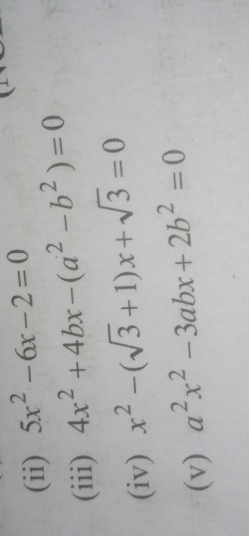 (ii) 5x² − 6x − 2 = 0
(iii) 4x² + 4bx − (a² − b²) = 0
(iv) x² − (√3 + 1)x + √3 = 0
(v) a²x² − 3abx + 2b² = 0